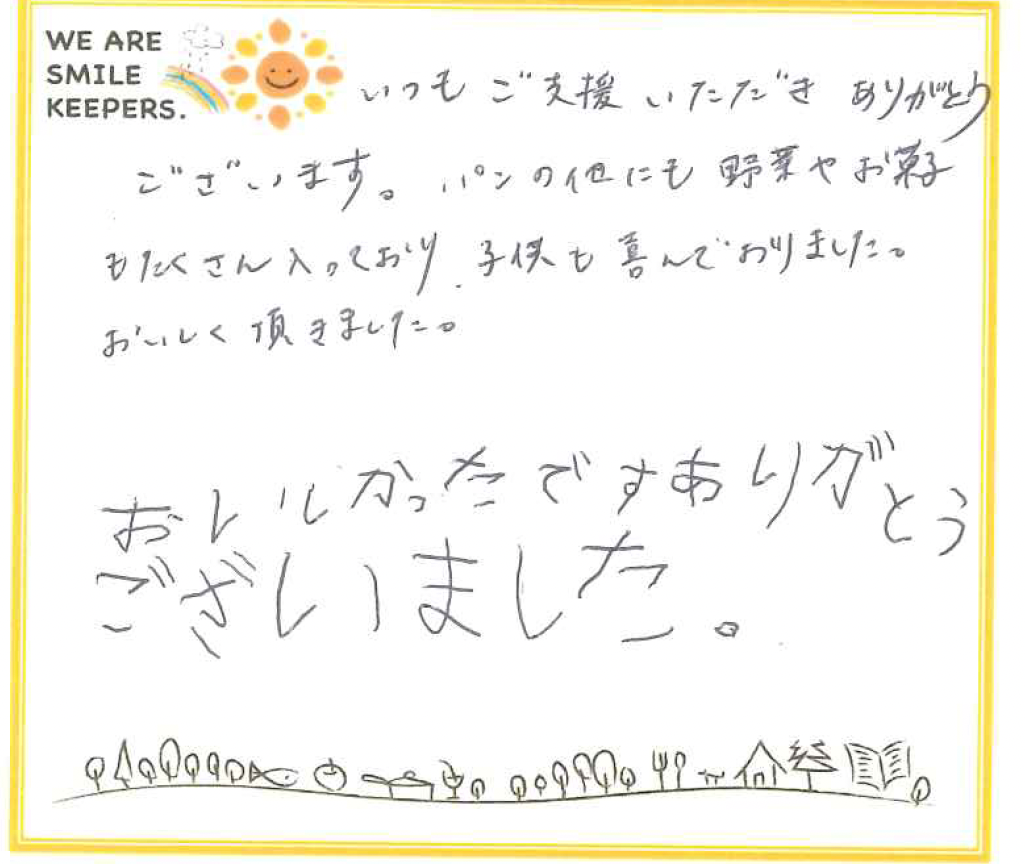 WE ARE
SMILE
KEEPERS.
いつも ご支援 いただき ありがとう
ございます。パンの他にも 野菜やお菓子
もたくさん入っており、子供も喜んでおりました。
おいしく頂きました。
おいしかったですありがとう
ございました。